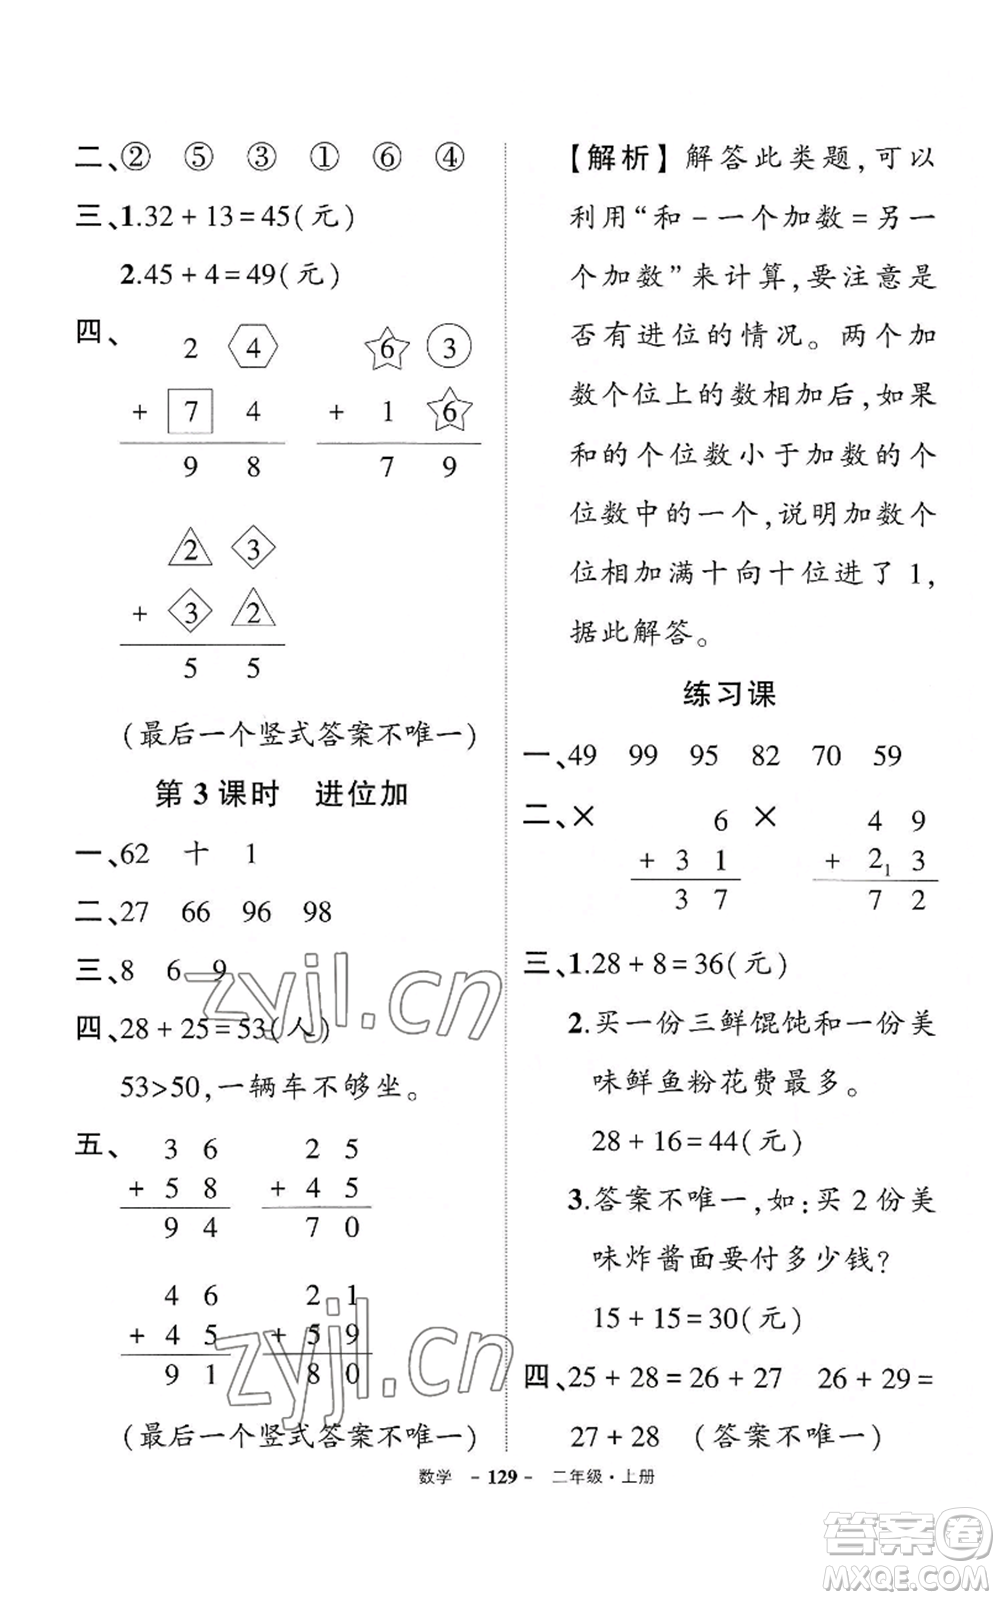 二、② ⑤ ③ ① ⑥ ④
三、1.32 + 13 = 45(元)
2.45 + 4 = 49(元)
四、
2 4
+ 7 4
9 8
6 3
+ 1 6
7 9
2 3
+ 3 2
5 5
(最后一个竖式答案不唯一)
第 3 课时 进位加
一、62 十 1
二、27 66 96 98
三、8 6 9
四、28 + 25 = 53(人)
53>50,一辆车不够坐。
五、
3 6
+ 5 8
9 4
2 5
+ 4 5
7 0
4 6
+ 4 5
9 1
2 1
+ 5 9
8 0
(最后一个竖式答案不唯一)
【解析】解答此类题,可以
利用“和 - 一个加数 = 另一
个加数”来计算,要注意是
否有进位的情况。两个加
数个位上的数相加后,如果
和的个位数小于加数的个
位数中的一个,说明加数个
位相加满十向十位进了 1,
据此解答。
练习课
一、49 99 95 82 70 59
二、×
6
+ 3 1
3 7
×
4 9
+ 2₁ 3
7 2
三、1.28 + 8 = 36(元)
2.买一份三鲜馄饨和一份美
味鲜鱼粉花费最多。
28 + 16 = 44(元)
3.答案不唯一,如:买 2 份美
味炸酱面要付多少钱?
15 + 15 = 30(元)
四、25 + 28 = 26 + 27 26 + 29 =
27 + 28 (答案不唯一)
数学 - 129 - 二年级·上册
zyjl.cn
zyjl.cn
答案卷
MXQE.COM